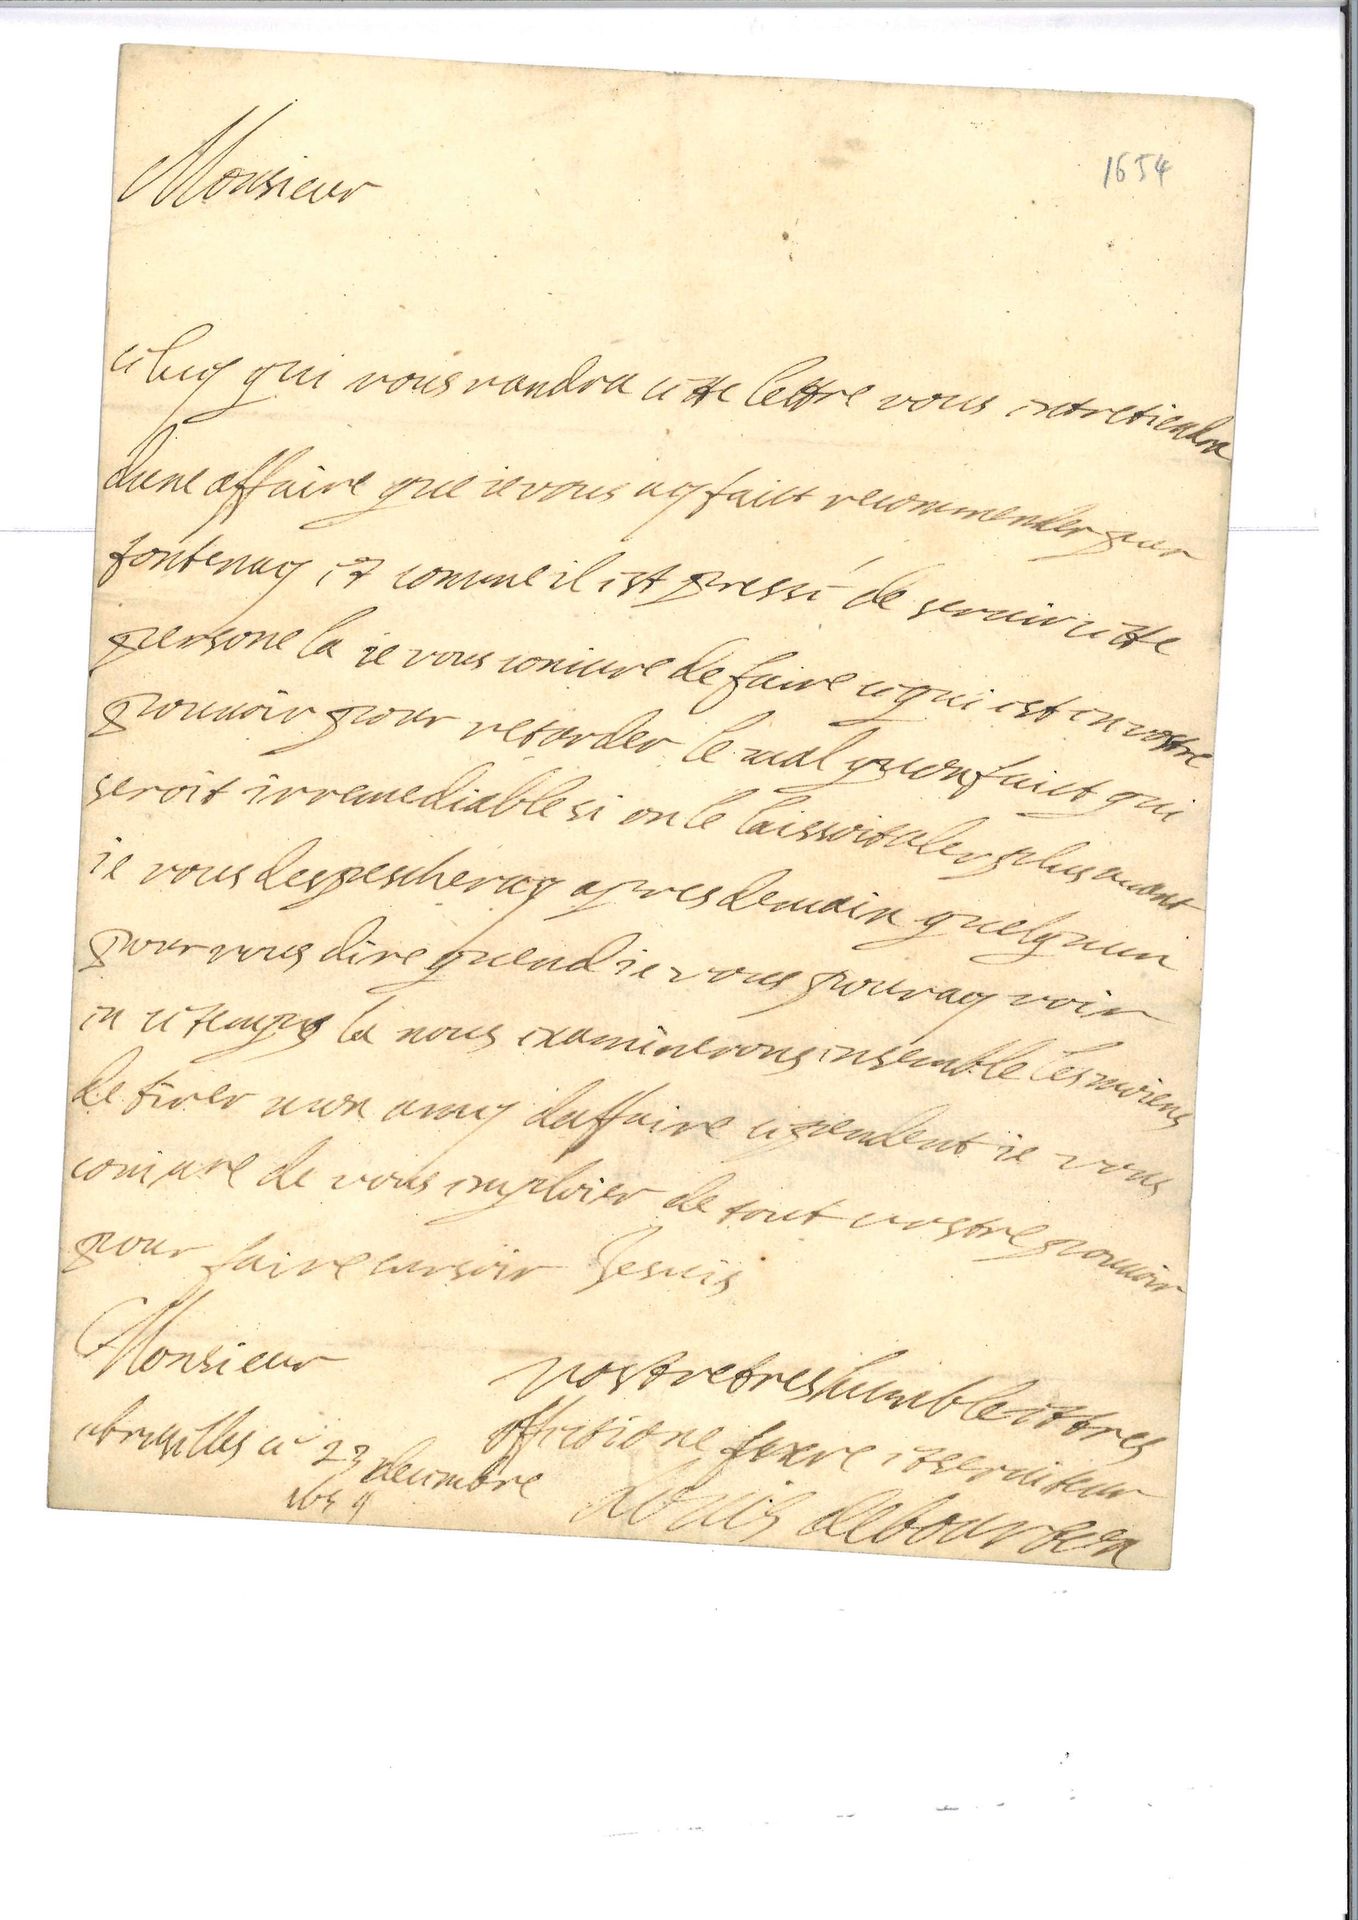 1654
Monsieur
celuy qui vous randra cette lettre vous entretiendra
dune affaire que ie vous ay faict recommender par
fontenay et comme il est pressé de servir cette
persone la ie vous coniure de faire ce qui est en vostre
pouvoir pour retarder le mal quon faict qui
seroit irremediable si on le laissoit aler plus avant
ie vous despescheray apres demain quelquun
pour vous dire quend ie vous pouray voir
en ce temps la nous examinerons ensemble les moiens
de tirer mon amy daffaire cependent ie vous
coniure de vous emploier de tout vostre pouvoir
pour faire Je suis
Monsieur
vostre tres humble et tres
affectione et serviteur
a bruxelles ce 23 decembre
1654
Louis de bourbon